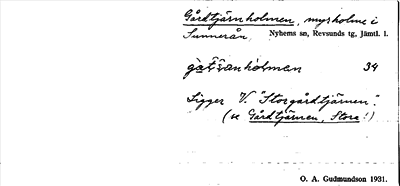 Gårdtjärnholmen, myrholme i
Sunnerån, Nyhems sn, Revsunds tg, Jämtl. l.
34
Ligger V. "Storgårdtjärnen".
(se Gårdtjärnen, Stora!)
O. A. Gudmundson 1931.